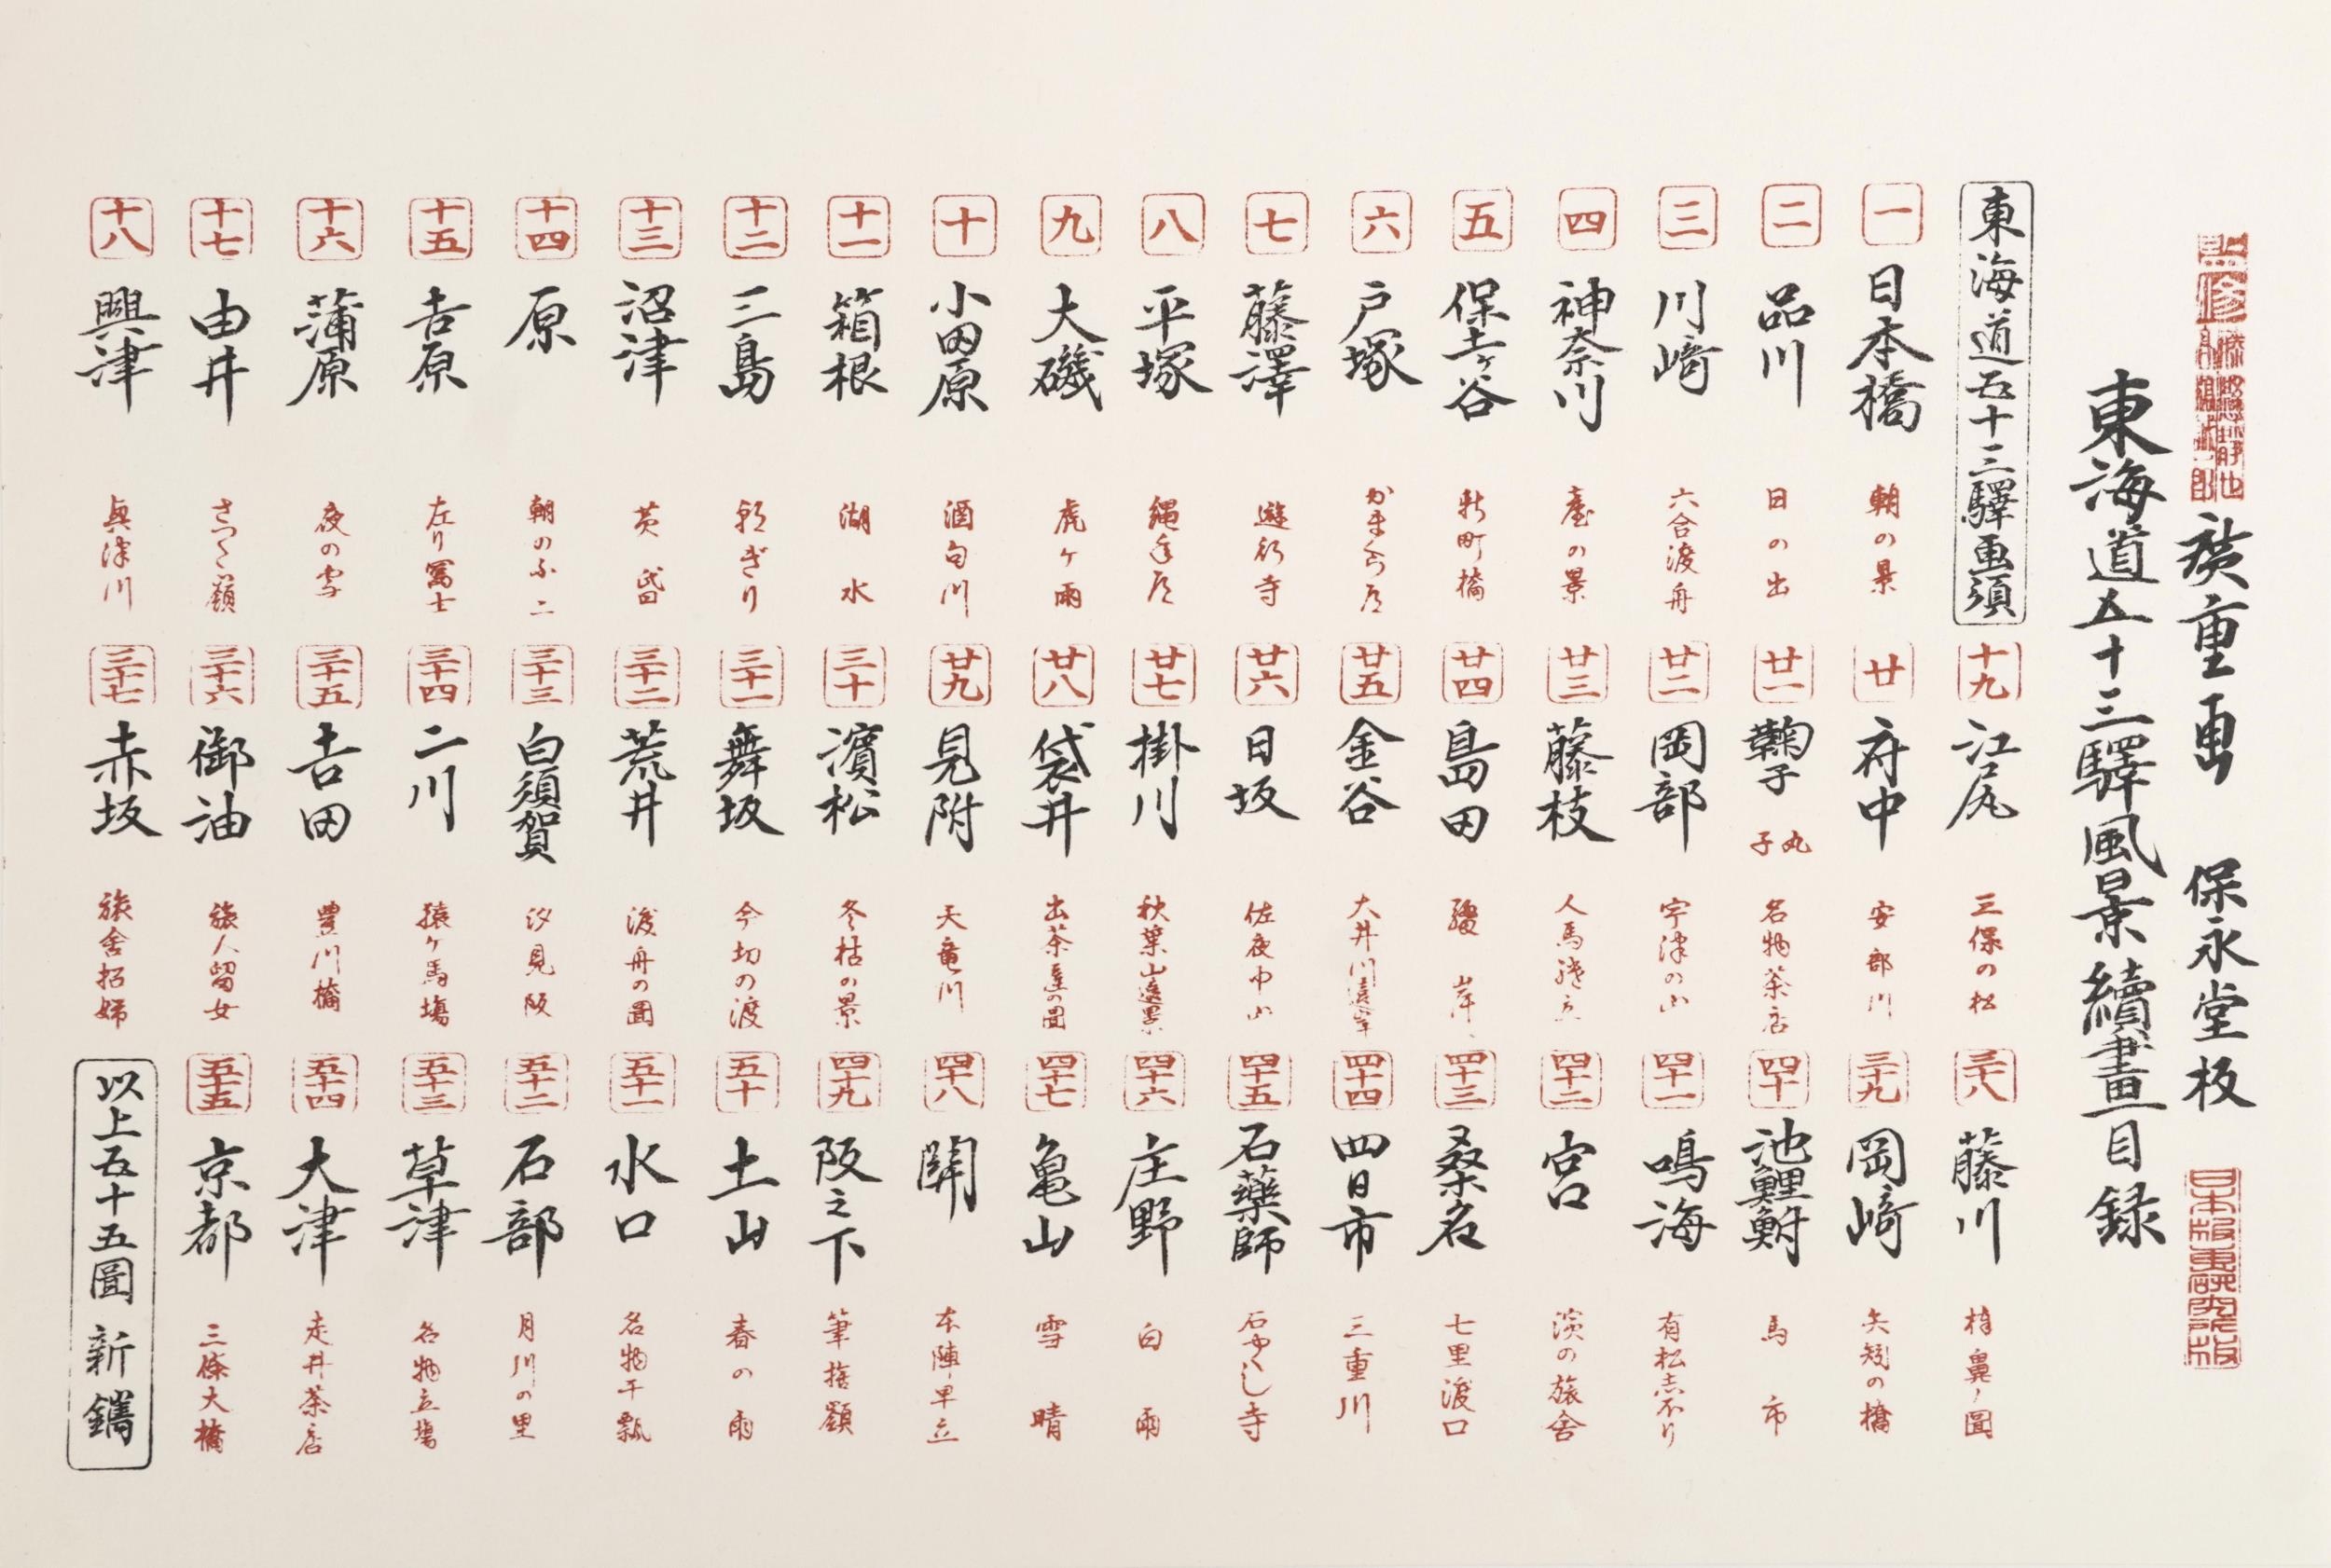 廣重画　保永堂板
日本版画研究所版
東海道五十三驛風景續畫目録
東海道五十三驛画須
一 日本橋 朝の景
二 品川 日の出
三 川﨑 六合渡舟
四 神奈川 臺の景
五 保土ヶ谷 新町橋
六 戸塚
七 藤澤 遊行寺
八 平塚 縄手道
九 大磯 虎ヶ雨
十 小田原 酒匂川
十一 箱根 湖水
十二 三島 朝ぎり
十三 沼津 黄昏
十四 原 朝のふ二
十五 吉原 左り冨士
十六 蒲原 夜の雪
十七 由井 さつた嶺
十八 興津 興津川
十九 江尻 三保の松
廿 府中 安部川
廿一 鞠子 丸子 名物茶店
廿二 岡部 宇津の山
廿三 藤枝 人馬継立
廿四 島田 岸
廿五 金谷 大井川遠岸
廿六 日坂 佐夜中山
廿七 掛川 秋葉山遠景
廿八 袋井 出茶屋の圖
廿九 見附 天竜川
三十 濱松 冬枯の景
三十一 舞坂 今切の渡
三十二 荒井 渡舟の圖
三十三 白須賀 汐見阪
三十四 二川 猿ヶ馬場
三十五 吉田 豊川橋
三十六 御油 旅人留女
三十七 赤坂 旅舎招婦
三十八 藤川 棒鼻ノ圖
三十九 岡﨑 矢矧の橋
四十 池鯉鮒 馬市
四十一 鳴海 有松志ホり
四十二 宮 濱の旅舎
四十三 桑名 七里渡口
四十四 四日市 三重川
四十五 石藥師 石やくし寺
四十六 庄野 白雨
四十七 亀山 雪晴
四十八 関 本陣早立
四十九 阪之下 筆捨嶺
五十 土山 春の雨
五十一 水口 名物干瓢
五十二 石部 月川の里
五十三 草津 名物立場
五十四 大津 走井茶店
五十五 京都 三條大橋
以上五十五圖 新鐫